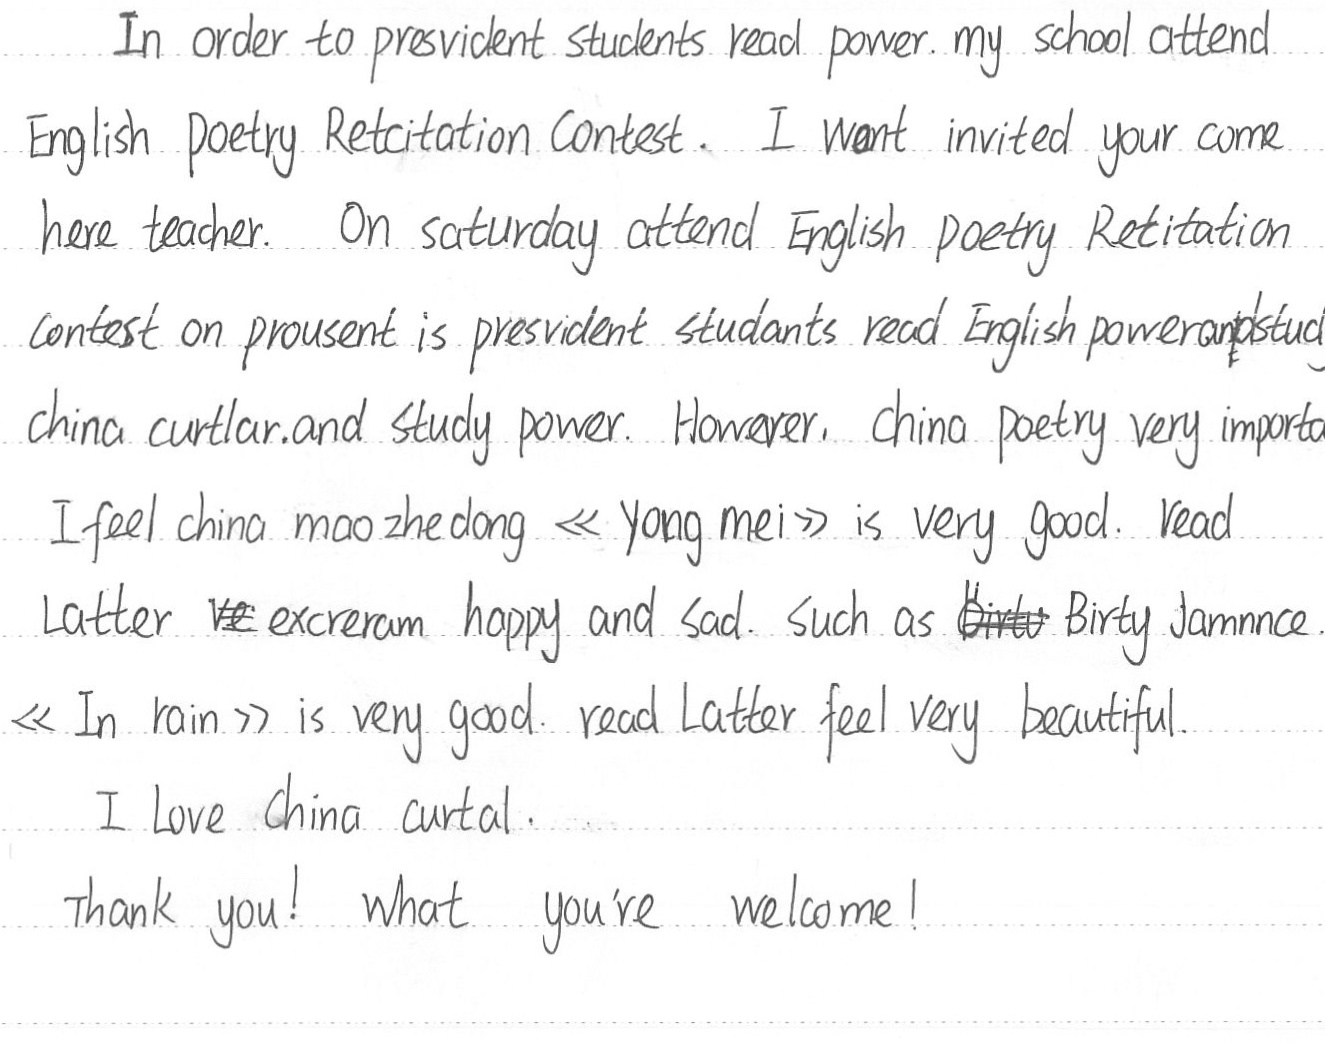 In order to presvident students read power. my school attend
English Poetry Retcitation Contest. I want invited your come
here teacher. On saturday attend English Poetry Retitation
contest on prousent is presvident studants read English power and stud
china curtlar. and study power. Howerer, china poetry very importa
I feel china mao zhe dong 《 Yong mei 》 is very good. read
Latter excreram happy and sad. such as Birty Jamnnce.
《 In rain 》 is very good. read Latter feel very beautiful.
I Love China curtal.
Thank you! What you're welcome!